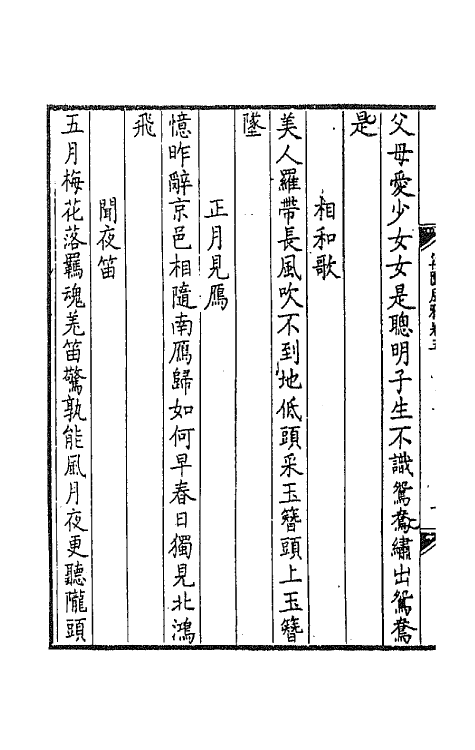 父母愛少女女是聰明子生不識鴛鴦繡出鴛鴦
是
相和歌
美人羅帶長風吹不到地低頭采玉簪頭上玉簪
墜
正月見鴈
憶昨辭京邑相隨南鴈歸如何早春日獨見北鴻
飛
聞夜笛
五月梅花落羈魂羌笛驚孰能風月夜更聽隴頭